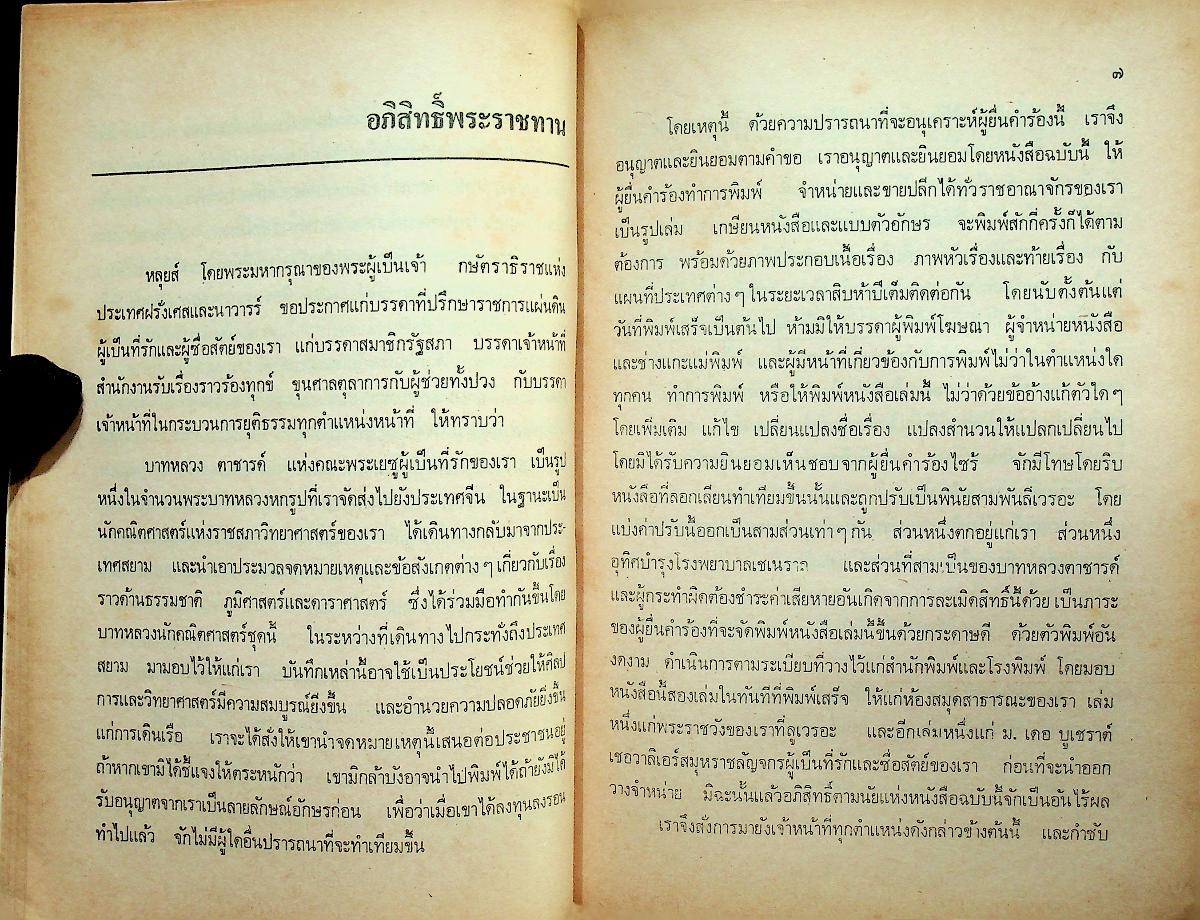 อภิสิทธิ์พระราชทาน
หลุยส์ โดยพระมหากรุณาของพระผู้เป็นเจ้า กษัตราธิราชแห่ง
ประเทศฝรั่งเศสและนาวารร์ ขอประกาศแก่บรรดาที่ปรึกษาราชการแผ่นดิน
ผู้เป็นที่รักและผู้ซื่อสัตย์ของเรา แก่บรรดาสมาชิกรัฐสภา บรรดาเจ้าหน้าที่
สำนักงานรับเรื่องราวร้องทุกข์ ขุนศาลตุลาการกับผู้ช่วยทั้งปวง กับบรรดา
เจ้าหน้าที่ในกระบวนการยุติธรรมทุกตำแหน่งหน้าที่ ให้ทราบว่า
บาทหลวง ตาชารด์ แห่งคณะพระเยซูผู้เป็นที่รักของเรา เป็นรูป
หนึ่งในจำนวนพระบาทหลวงหกรูปที่เราจัดส่งไปยังประเทศจีน ในฐานะเป็น
นักคณิตศาสตร์แห่งราชสภาวิทยาศาสตร์ของเรา ได้เดินทางกลับมาจากประ-
เทศสยาม และนำเอาประมวลจดหมายเหตุและข้อสังเกตต่าง ๆ เกี่ยวกับเรื่อง
ราวด้านธรรมชาติ ภูมิศาสตร์และดาราศาสตร์ ซึ่งได้ร่วมมือทำกันขึ้นโดย
บาทหลวงนักคณิตศาสตร์ชุดนี้ ในระหว่างที่เดินทางไปกระทั่งถึงประเทศ
สยาม มามอบไว้ให้แก่เรา บันทึกเหล่านี้อาจใช้เป็นประโยชน์ช่วยให้ศิลป
การและวิทยาศาสตร์มีความสมบูรณ์ยิ่งขึ้น และอำนวยความปลอดภัยยิ่งขึ้น
แก่การเดินเรือ เราจะได้สั่งให้เขานำจดหมายเหตุนี้เสนอต่อประชาชนอยู่
ถ้าหากเขามิได้ชี้แจงให้ตระหนักว่า เขามิกล้าบังอาจนำไปพิมพ์ได้ถ้ายังมิได้
รับอนุญาตจากเราเป็นลายลักษณ์อักษรก่อน เพื่อว่าเมื่อเขาได้ลงทุนลงรอน
ทำไปแล้ว จักไม่มีผู้ใดอื่นปรารถนาที่จะทำเทียมขึ้น
๗
โดยเหตุนี้ ด้วยความปรารถนาที่จะอนุเคราะห์ผู้ยื่นคำร้องนี้ เราจึง
อนุญาตและยินยอมตามคำขอ เราอนุญาตและยินยอมโดยหนังสือฉบับนี้ ให้
ผู้ยื่นคำร้องทำการพิมพ์ จำหน่ายและขายปลีกได้ทั่วราชอาณาจักรของเรา
เป็นรูปเล่ม เกษียนหนังสือและแบบตัวอักษร จะพิมพ์สักกี่ครั้งก็ได้ตาม
ต้องการ พร้อมด้วยภาพประกอบเนื้อเรื่อง ภาพหัวเรื่องและท้ายเรื่อง กับ
แผนที่ประเทศต่าง ๆ ในระยะเวลาสิบห้าปีเต็มติดต่อกัน โดยนับตั้งต้นแต่
วันที่พิมพ์เสร็จเป็นต้นไป ห้ามมิให้บรรดาผู้พิมพ์โฆษณา ผู้จำหน่ายหนังสือ
และช่างแกะแม่พิมพ์ และผู้มีหน้าที่เกี่ยวข้องกับการพิมพ์ไม่ว่าในตำแหน่งใด
ทุกคน ทำการพิมพ์ หรือให้พิมพ์หนังสือเล่มนี้ ไม่ว่าด้วยข้ออ้างแก้ตัวใด ๆ
โดยเพิ่มเติม แก้ไข เปลี่ยนแปลงชื่อเรื่อง แปลงสำนวนให้แปลกเปลี่ยนไป
โดยมิได้รับความยินยอมเห็นชอบจากผู้ยื่นคำร้องไซร้ จักมีโทษโดยริบ
หนังสือที่ลอกเลียนทำเทียมขึ้นนั้นและถูกปรับเป็นพินัยสามพันลิ์เวรอะ โดย
แบ่งค่าปรับนี้ออกเป็นสามส่วนเท่า ๆ กัน ส่วนหนึ่งตกอยู่แก่เรา ส่วนหนึ่ง
อุทิศบำรุงโรงพยาบาลเชเนราล และส่วนที่สามเป็นของบาทหลวงตาชารด์
และผู้กระทำผิดต้องชำระค่าเสียหายอันเกิดจากการละเมิดสิทธิ์นี้ด้วย เป็นภาระ
ของผู้ยื่นคำร้องที่จะจัดพิมพ์หนังสือเล่มนี้ขึ้นด้วยกระดาษดี ด้วยตัวพิมพ์อัน
งดงาม ดำเนินการตามระเบียบที่วางไว้แก่สำนักพิมพ์และโรงพิมพ์ โดยมอบ
หนังสือนี้สองเล่มในทันทีที่พิมพ์เสร็จ ให้แก่ห้องสมุดสาธารณะของเรา เล่ม
หนึ่งแก่พระราชวังของเราที่ลูเวรอะ และอีกเล่มหนึ่งแก่ ม. เดอ บูเชราต์
เชอวาลิเอร์สมุหราชลัญจกรผู้เป็นที่รักและซื่อสัตย์ของเรา ก่อนที่จะนำออก
วางจำหน่าย มิฉะนั้นแล้วอภิสิทธิ์ตามนัยแห่งหนังสือฉบับนี้จักเป็นอันไร้ผล
เราจึงสั่งการมายังเจ้าหน้าที่ทุกตำแหน่งดังกล่าวข้างต้นนี้ และกำชับ